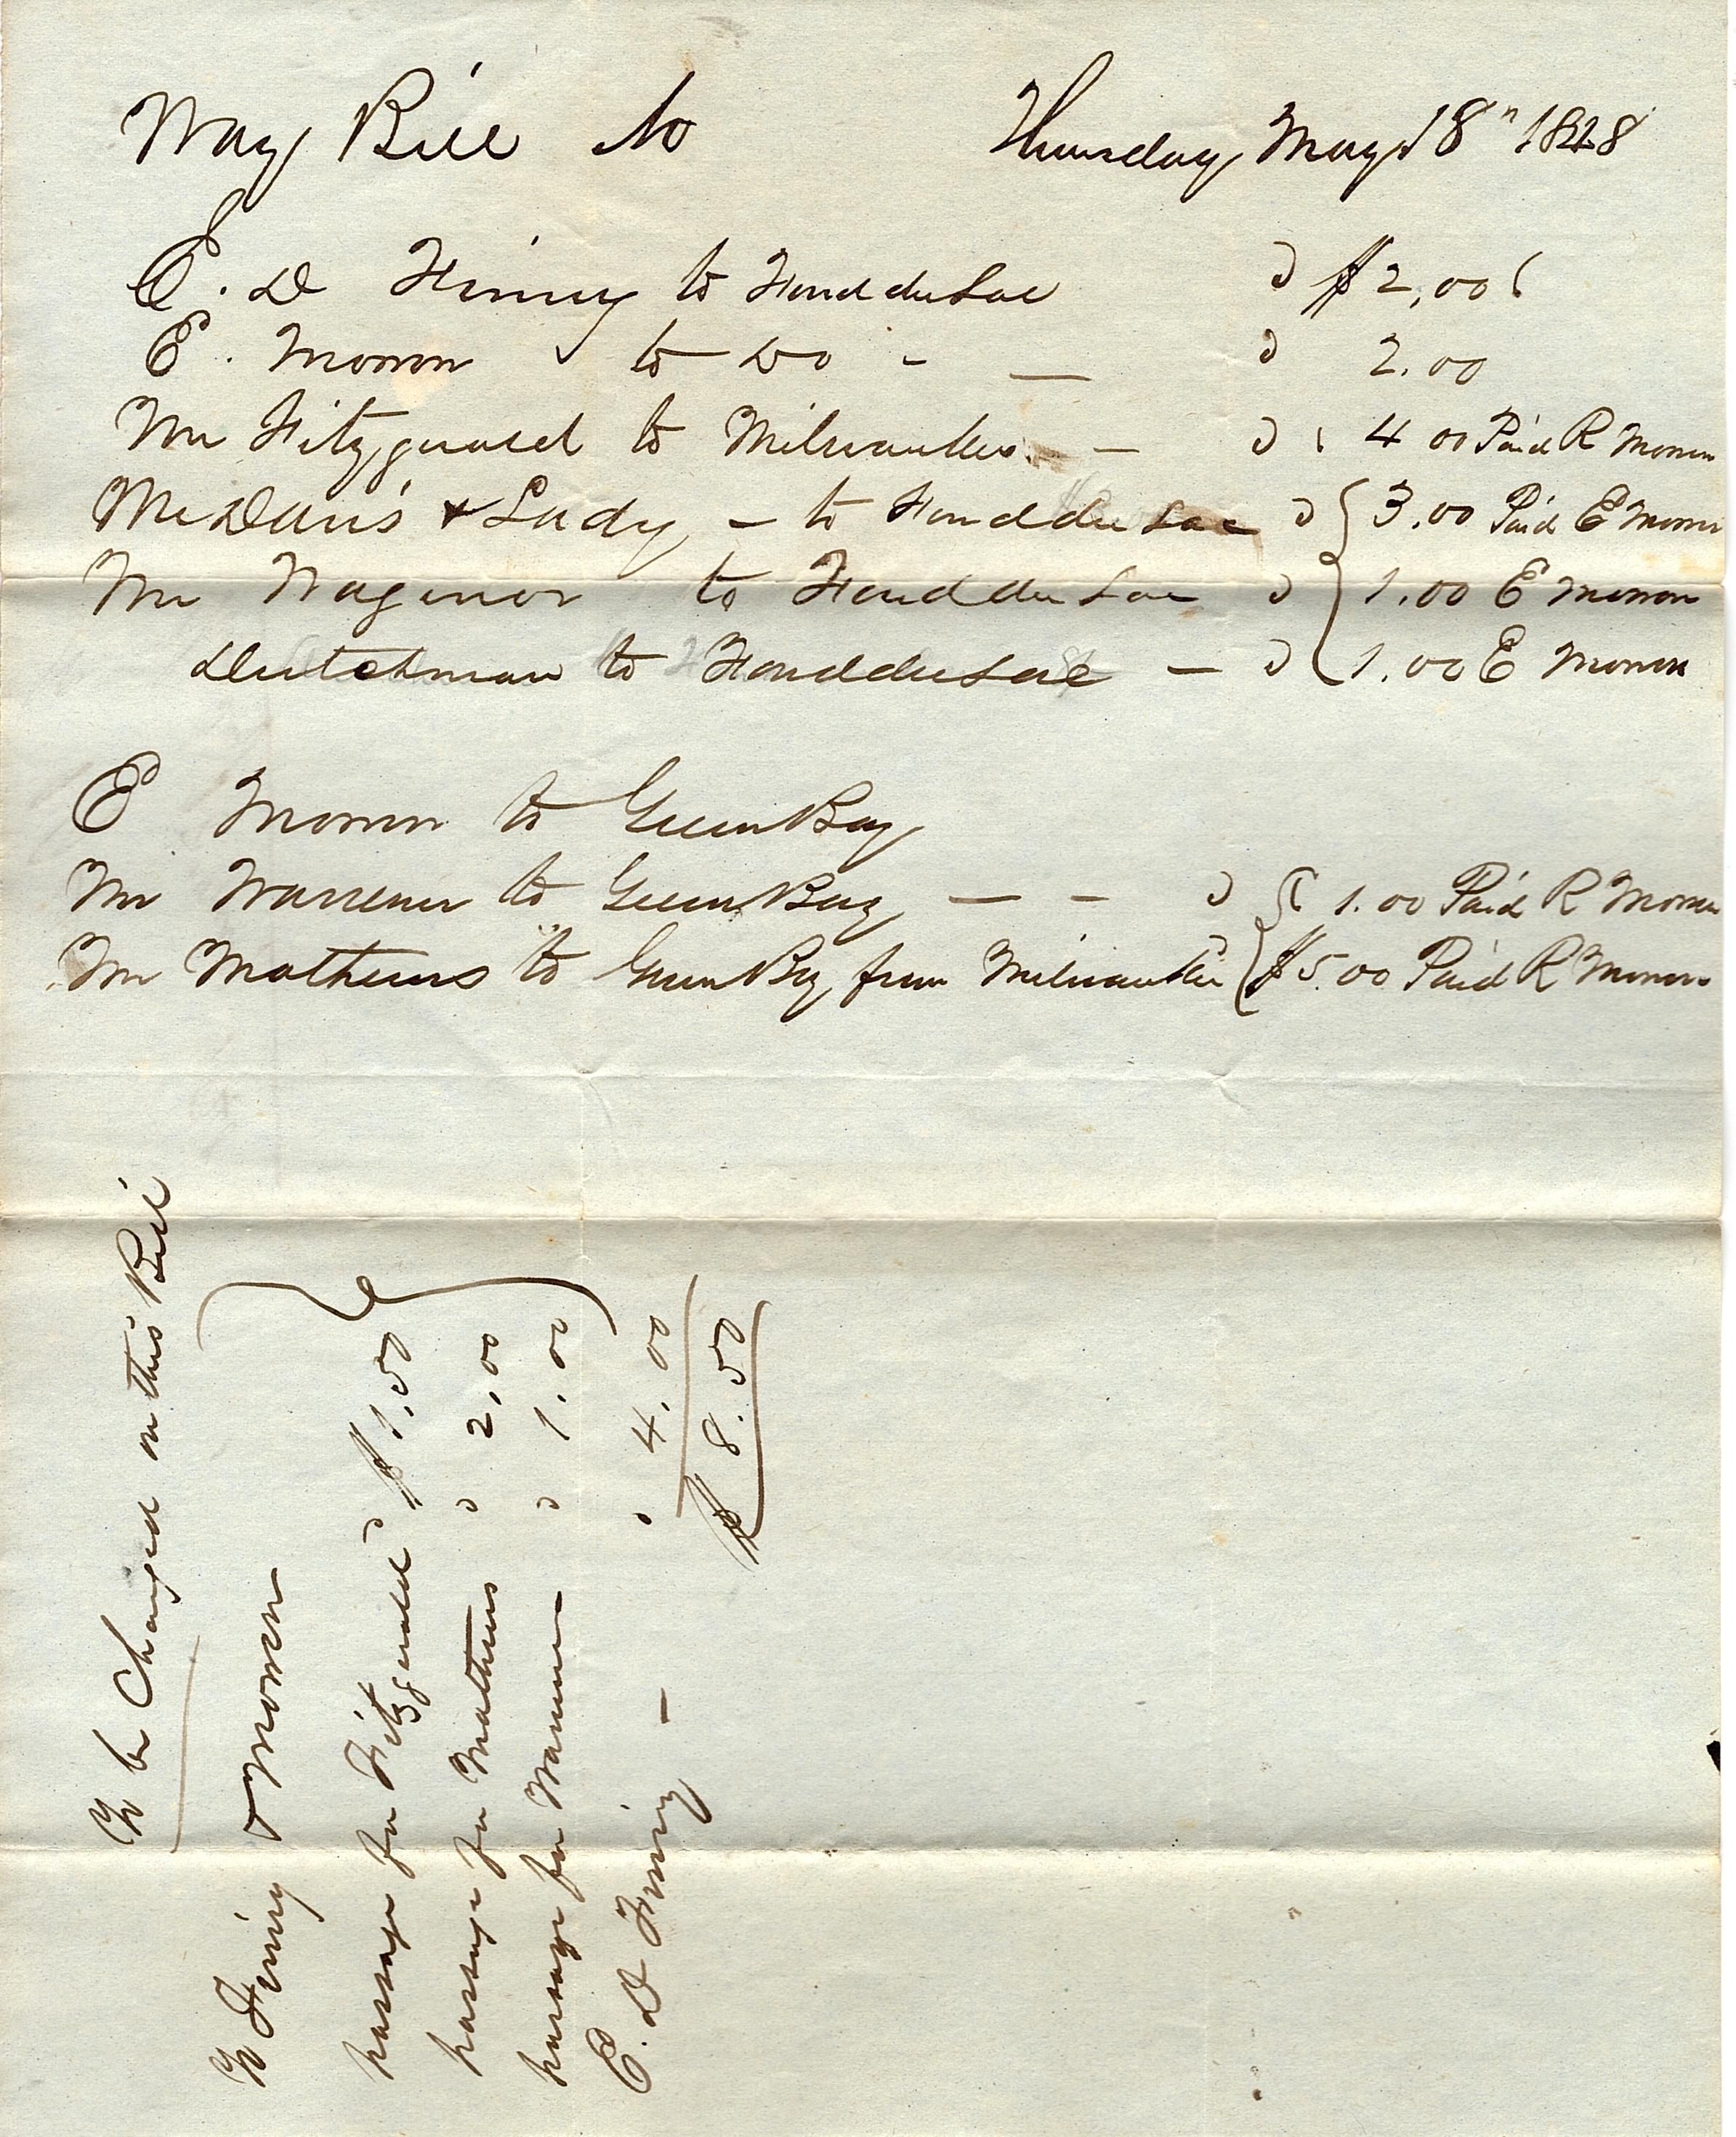 Way Bill to Thursday, May 18" 1848
E. D Finny to Fond du Lac " $2,00
E. Morrow to Do - — " 2.00
Mr Fitzgerald to Milwaukee — " 4 00 Paid R Morrow
Mr Davis & Lady — to Fond du Lac " 3.00 Paid E Morrow
Mr Wagenor to Fond du Lac " 1.00 E Morrow
Dutchman to Fond du Lac — " 1.00 E Morrow
E Morrow to Green Bay
Mr Warrener to Green Bay — — " 1.00 Paid R Morrow
Mr Mathews to Green Bay from Milwaukee $5.00 Paid R Morrow
To be Charged on this Bill
To Finny & Morrow
passage for Fitzgerald " $1.50
passage for Mathews " 2,00
passage for Warrener " 1.00
E. D Finny — " 4.00
$8.50